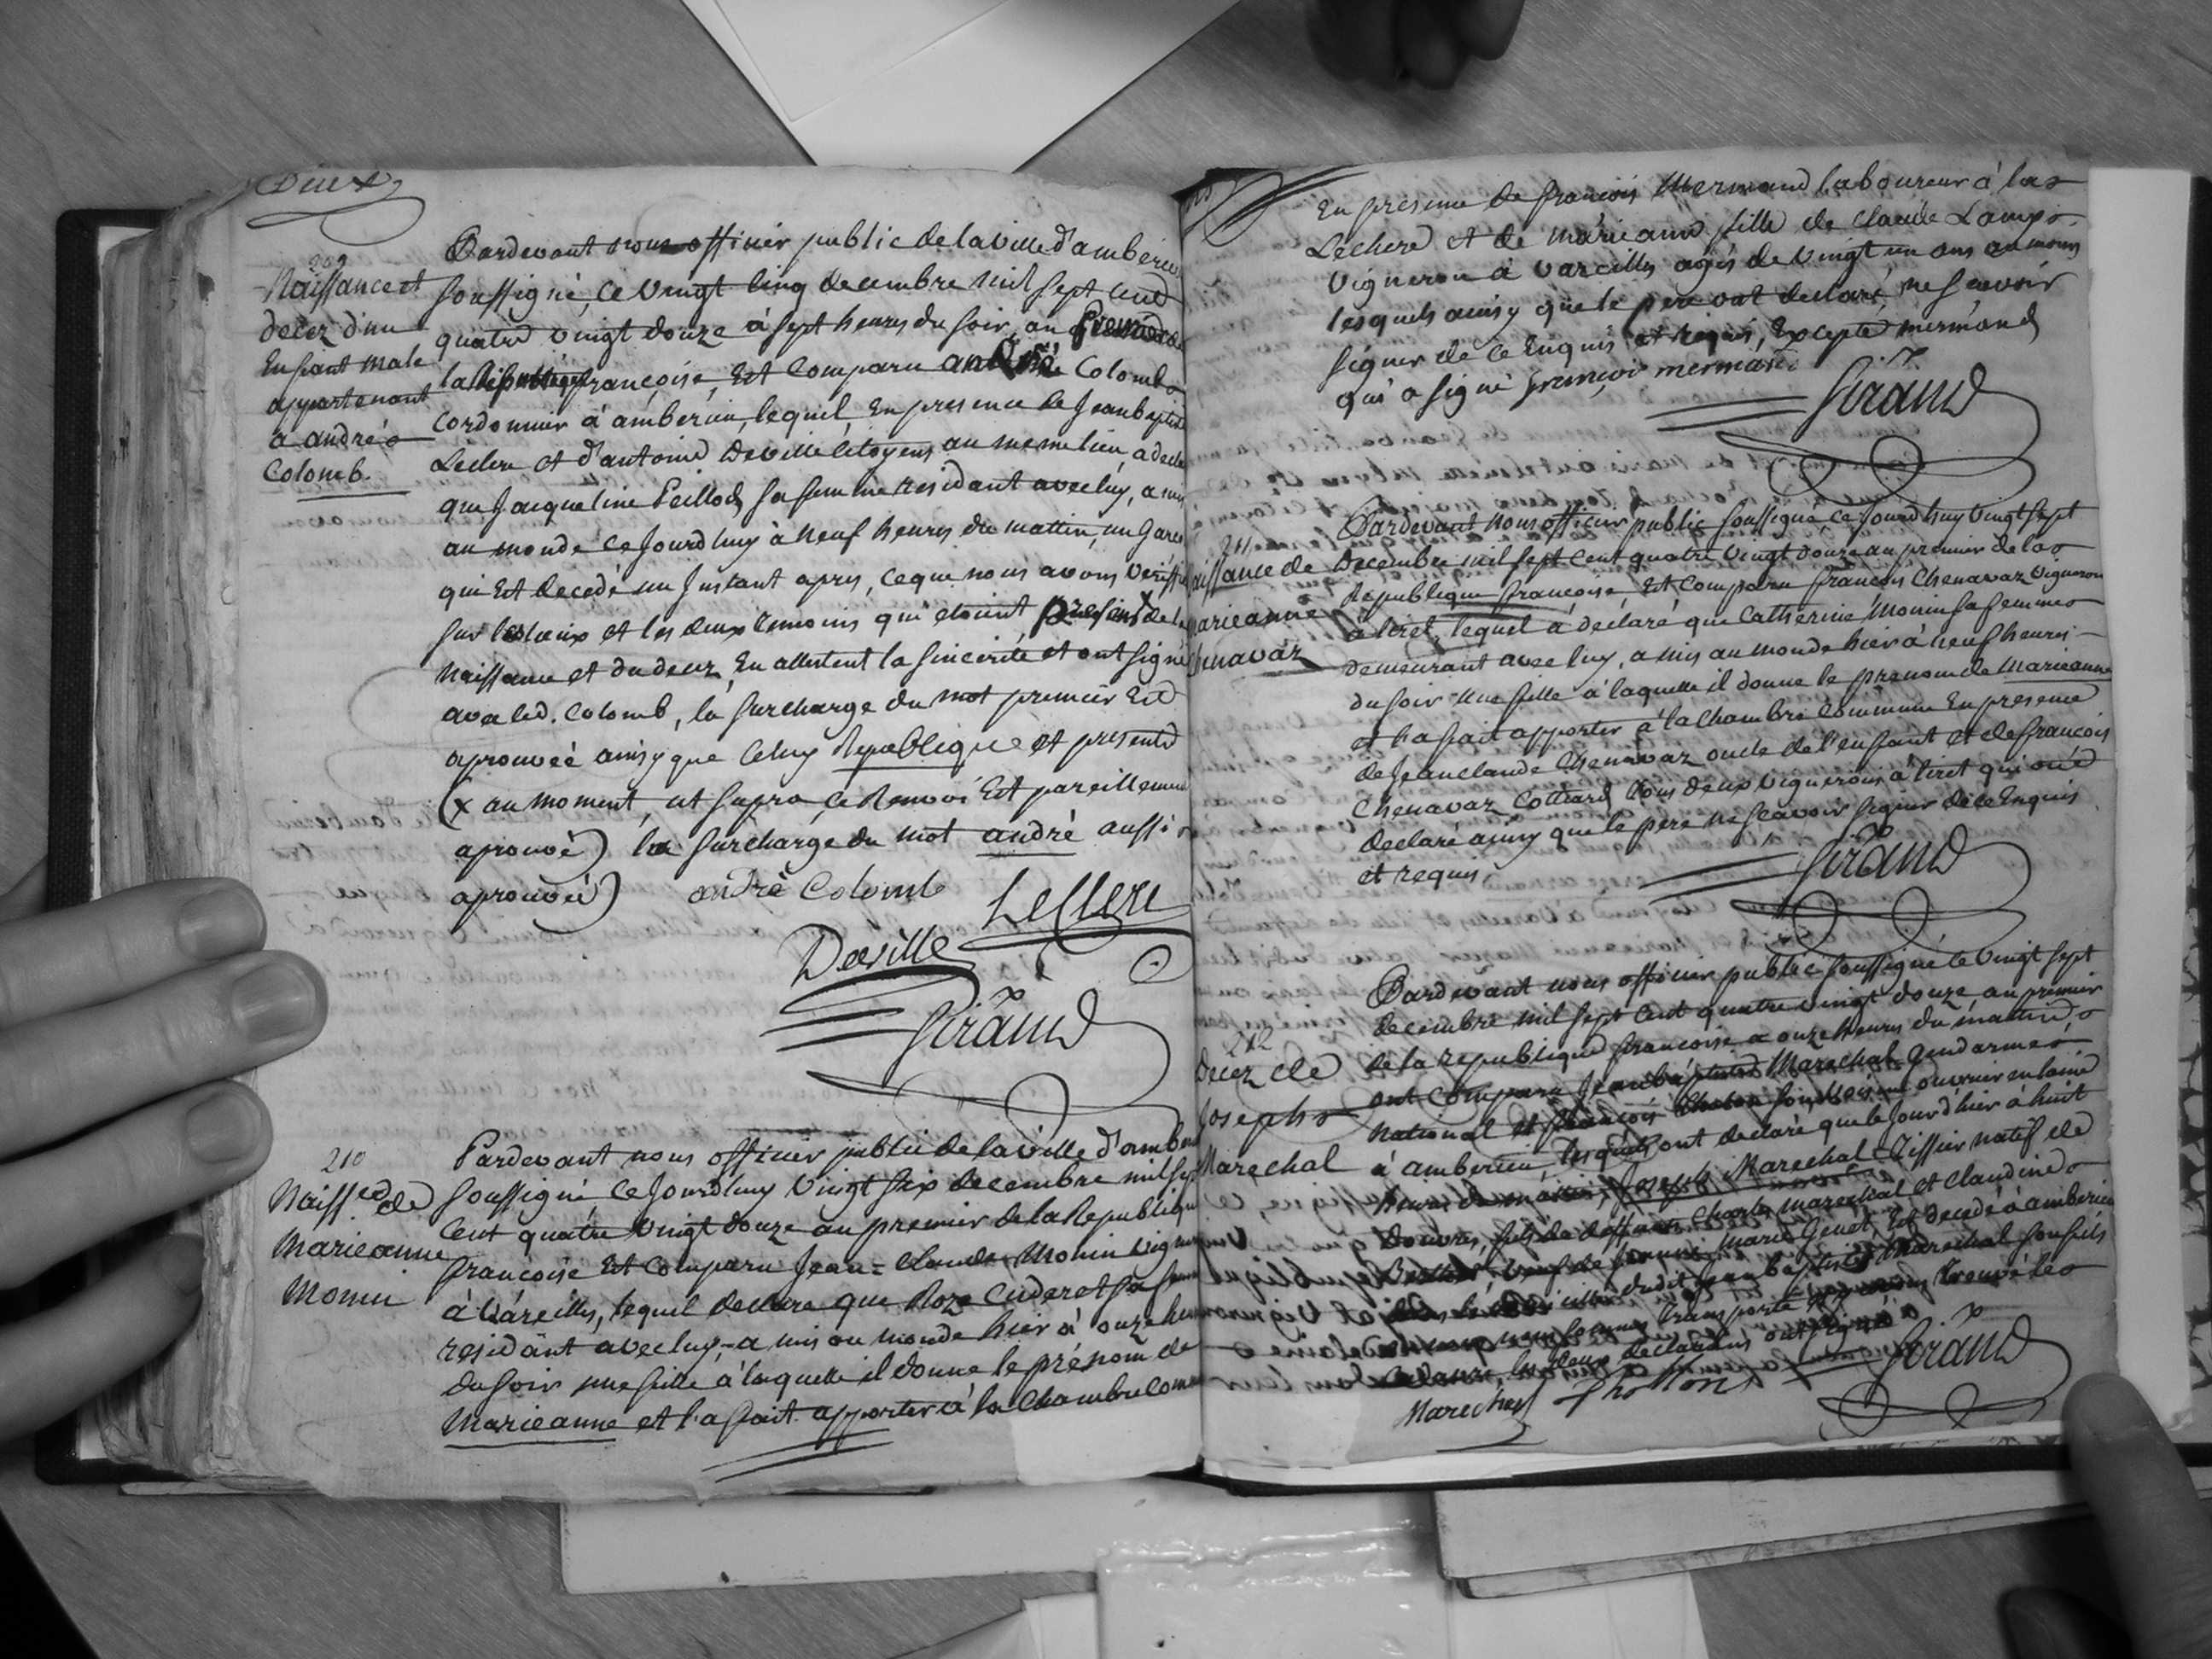 Deux
209
Naissance et
decez d'un
Enfant male
appartenant
a andré
Colomb.
Pardevant nous officier public de la ville d'amberieu
soussigné, ce vingt cinq decembre mil sept cent
quatre vingt douze à sept heures du soir, au premier de
la Republique françoise, Est comparu andré Colomb
cordonnier à amberieu, lequel, En presence de Jean baptiste
Leclere et d'antoine Deville Citoyens au meme lieu, a declaré
que Jacqueline Peillod sa femme residant avec luy, a mis
au monde ce jourdhuy à neuf heures du mattin, un garçon
qui Est decedé un Instant apres, ce que nous avons verifié
sur les lieux et les deux temoins qui etoient presents x de la
Naissance et du decez, En attestent la sincerité et ont signé
avec led. Colomb, la surcharge du mot premier Est
aprouvée ainsy que celuy Republique et presents
(x au moment, ut supra, ce Renvoi Est pareillement
aprouvé) la surcharge du mot andré aussi
aprouvée)
andré Colomb
Leclere
Deville
Giraud
210
Naiss.ce de
Marieanne
Monin
Pardevant nous officier public de la ville d'amberieu
soussigné, ce jourdhuy vingt six decembre mil sept
Cent quatre vingt douze au premier de la Republique
françoise Est Comparu Jean=Claude Monin vigneron
à Vareilles, lequel declare que Roze Cuderet sa femme
residant avec luy, a mis au monde hier à onze heures
du soir une fille à laquelle il donne le prénom de
Marieanne et l'a fait apporter à la Chambre Commune
En presence de françois Mermand laboureur à la
Lechere et de marieanne fille de Claude Lamp
vigneron à Vareilles agés de vingt un ans au moins
lesquels ainsy que le pere ont declaré ne scavoir
signer de ce Enquis et requis, Excepté mermand
qui a signé françois mermand
Giraud
211
Naissance de
Marieanne
Chenavaz
Pardevant nous officier public soussigné, ce jourdhuy vingt sept
Decembre mil sept cent quatre vingt douze au premier de la
Republique françoise, Est Comparu françois Chenavaz vigneron
à tiret, lequel a declaré que Catherine Monin sa femme
demeurant avec luy, a mis au monde hier à neuf heures
du soir une fille à laquelle il donne le prenom de Marieanne
et l'a fait apporter à la Chambre Commune En presence
de Jean claude Chenavaz oncle de l'enfant et de françois
Chenavaz Cottard tous deux vignerons à tiret qui ont
declaré ainsy que le pere ne scavoir signer de ce Enquis
et requis.
Giraud
212
Decez de
Joseph
Marechal
Pardevant nous officier public soussigné le vingt sept
decembre mil sept Cent quatre vingt douze, au premier
de la republique françoise a onze heures du mattin,
ont comparu Jean baptiste Marechal Gendarme
National et françois son voisin ouvrier en laine
à amberieu, lesquels ont declaré que le jour d'hier à huit
heures du mattin, Joseph Marechal Tissier natif de
Douvres, fils de deffunts Charles marechal et Claudine
veuf de Jeanne Marie Genet, Est decedé à amberieu
dudit Jean baptiste Marechal son fils
nous sommes transporté et avons trouvé le
les deux declarans ont signé
Marechal
Thollon
Giraud